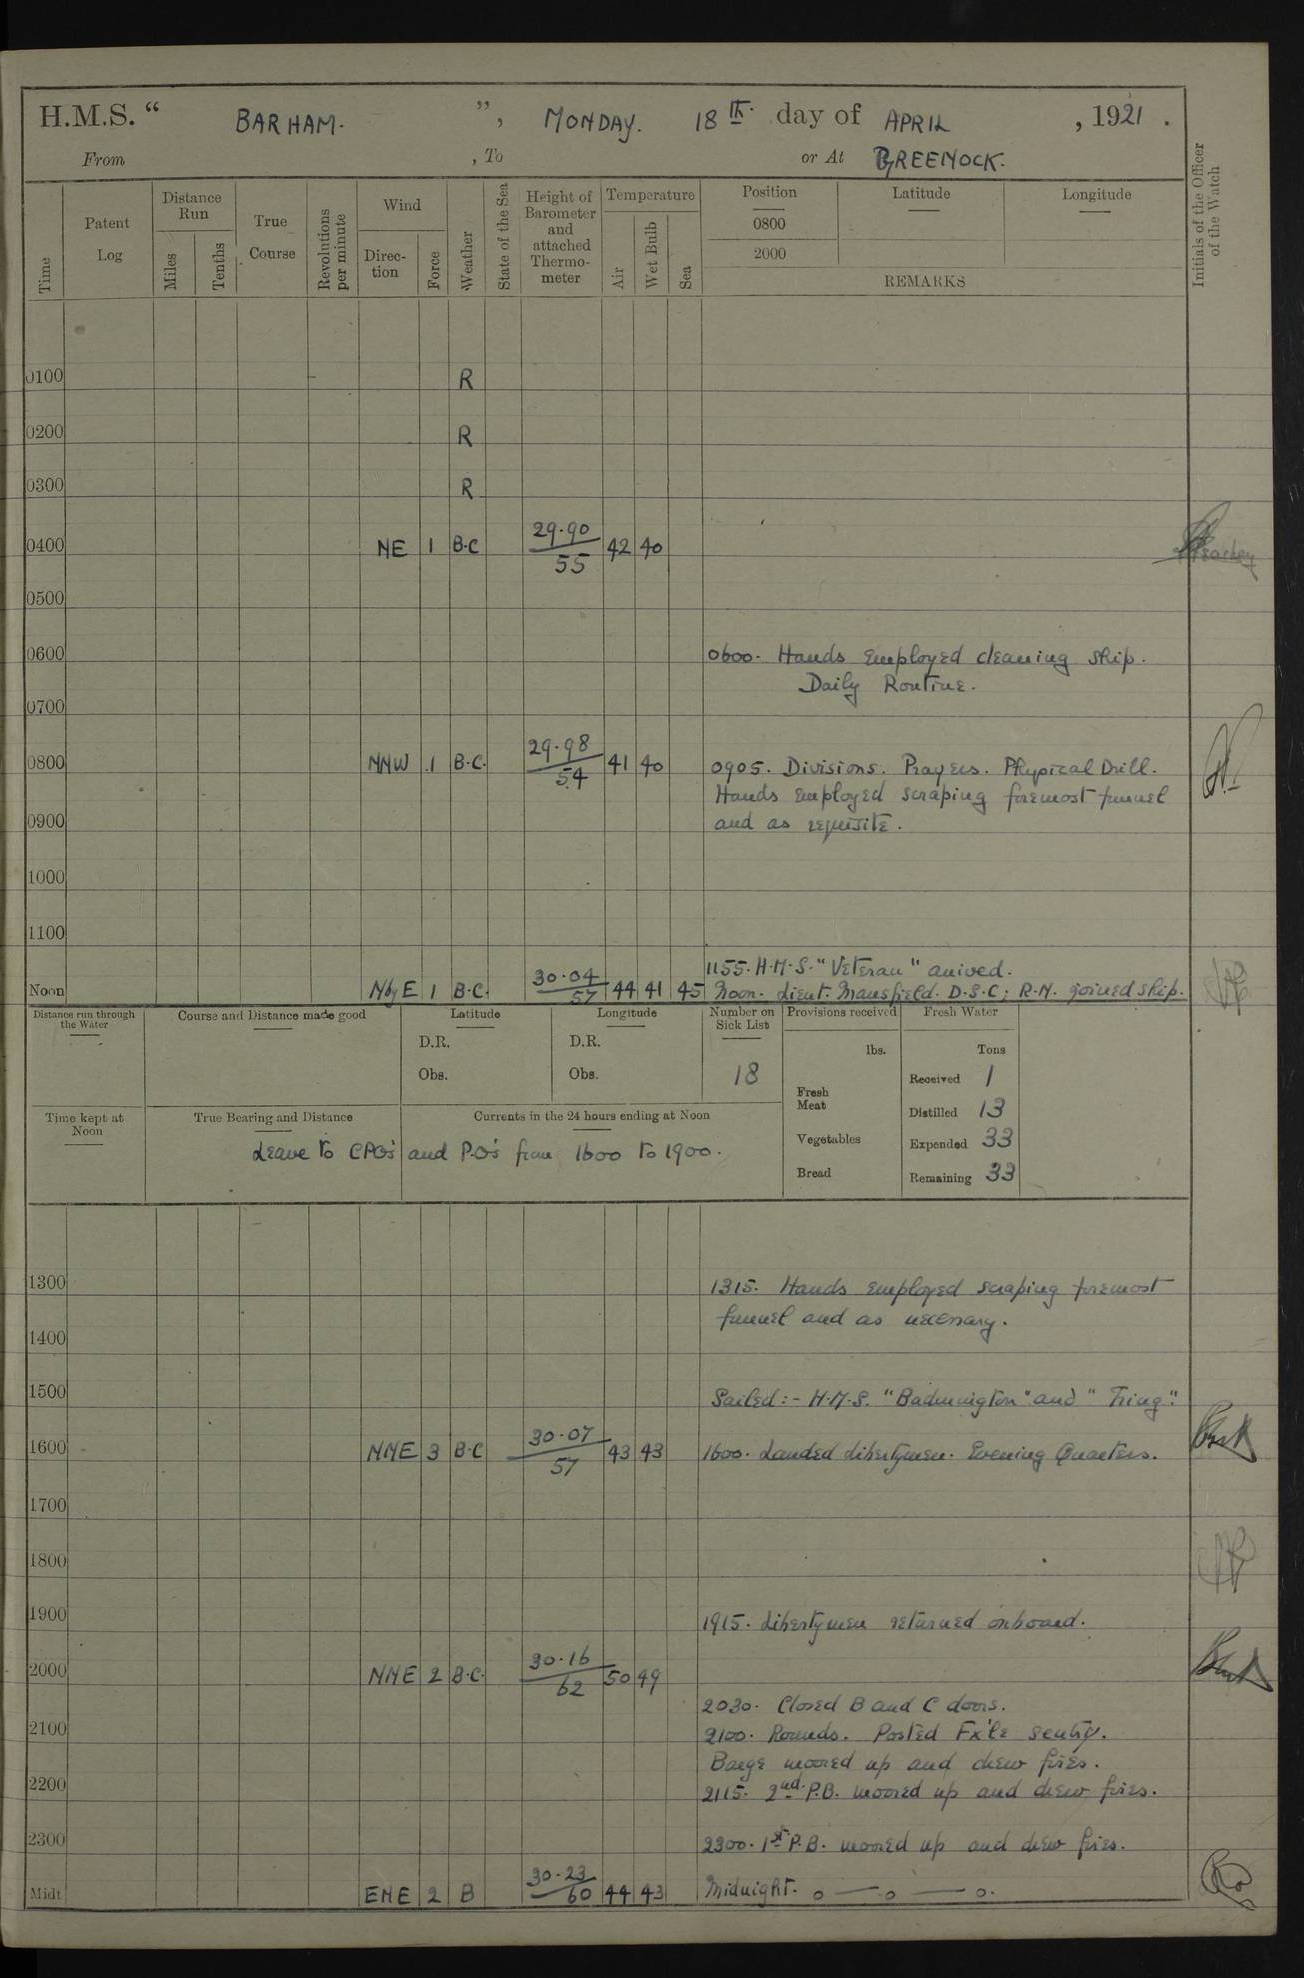 H.M.S. “ BARHAM. ”, MONDAY. 18th. day of APRIL , 1921 .
From , To or At GREENOCK.
Time
Patent Log
Distance Run
Miles
Tenths
True Course
Revolutions per minute
Wind
Direc-tion
Force
Weather
State of the Sea
Height of Barometer and attached Thermo-meter
Temperature
Air
Wet Bulb
Sea
Position
Latitude
Longitude
0800
2000
REMARKS
Initials of the Officer of the Watch
0100 R
0200 R
0300 R
0400 NE 1 B.C 29.90 55 42 40
0500
0600 0600. Hands Employed cleaning Ship.
Daily Routine.
0700
0800 NNW 1 B.C. 29.98 54 41 40 0905. Divisions. Prayers. Physical Drill.
Hands Employed scraping foremost funnel
0900 and as requisite.
1000
1100
1155. H.M.S. "Veteran" arrived.
Noon NbyE 1 B.C. 30.04 57 44 41 45 Noon. Lieut. Mansfield. D.S.C; R.N. joined ship.
Distance run through the Water
Course and Distance made good
Latitude
D.R.
Obs.
Longitude
D.R.
Obs.
Number on Sick List
18
Provisions received
lbs.
Fresh Meat
Vegetables
Bread
Fresh Water
Tons
Received 1
Distilled 13
Expended 33
Remaining 33
Time kept at Noon
True Bearing and Distance
Currents in the 24 hours ending at Noon
Leave to CPO's and P.O's from 1600 to 1900.
1300 1315. Hands Employed scraping foremost
funnel and as necessary.
1400
1500 Sailed:- H.M.S. "Badminton" and "Tring".
1600 NNE 3 B.C 30.07 57 43 43 1600. Landed libertymen. Evening Quarters.
1700
1800
1900 1915. Libertymen returned onboard.
2000 NNE 2 B.C. 30.16 62 50 49
2030. Closed B and C doors.
2100 2100. Rounds. Posted Fx'le sentry.
Barge moored up and drew fires.
2200 2115. 2nd. P.B. moored up and drew fires.
2300 2300. 1st P.B. moored up and drew fires.
Midt ENE 2 B 30.23 60 44 43 Midnight. o — o — o.